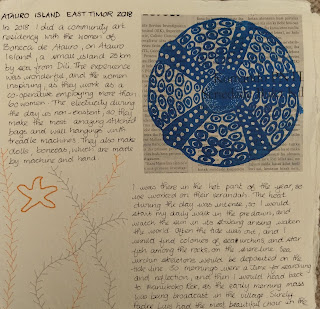 ATAURO ISLAND EAST TIMOR 2018
In 2018 I did a community art
residency with the women of
Boneca de Atauro, on Atauro
Island, a small island 25km
by sea from Dili. The experience
was wonderful, and the women
inspiring, as they work as a
co-operative employing more than
60 women. The electricity during
the day is non-existent, so they
make the most amazing stitched
bags and wall hangings with
treadle machines. They also make
dolls, bonecas, which are made
by machine and hand.
I was there in the hot part of the year, so
we worked on their verandah. The heat
during the day was intense, so I would
start my daily walk in the predawn, and
watch the sun in its striking arising waken
the world. Often the tide was out, and I
would find colonies of sea urchins and star
fish among the rocks on the shoreline. Sea
urchin skeletons would be deposited on the
tide line. So mornings were a time for searching
and reflection, and then I would head back
to for, as the early morning mass
was being broadcast in the village. Surely
Timor Leste had the most beautiful choir in the